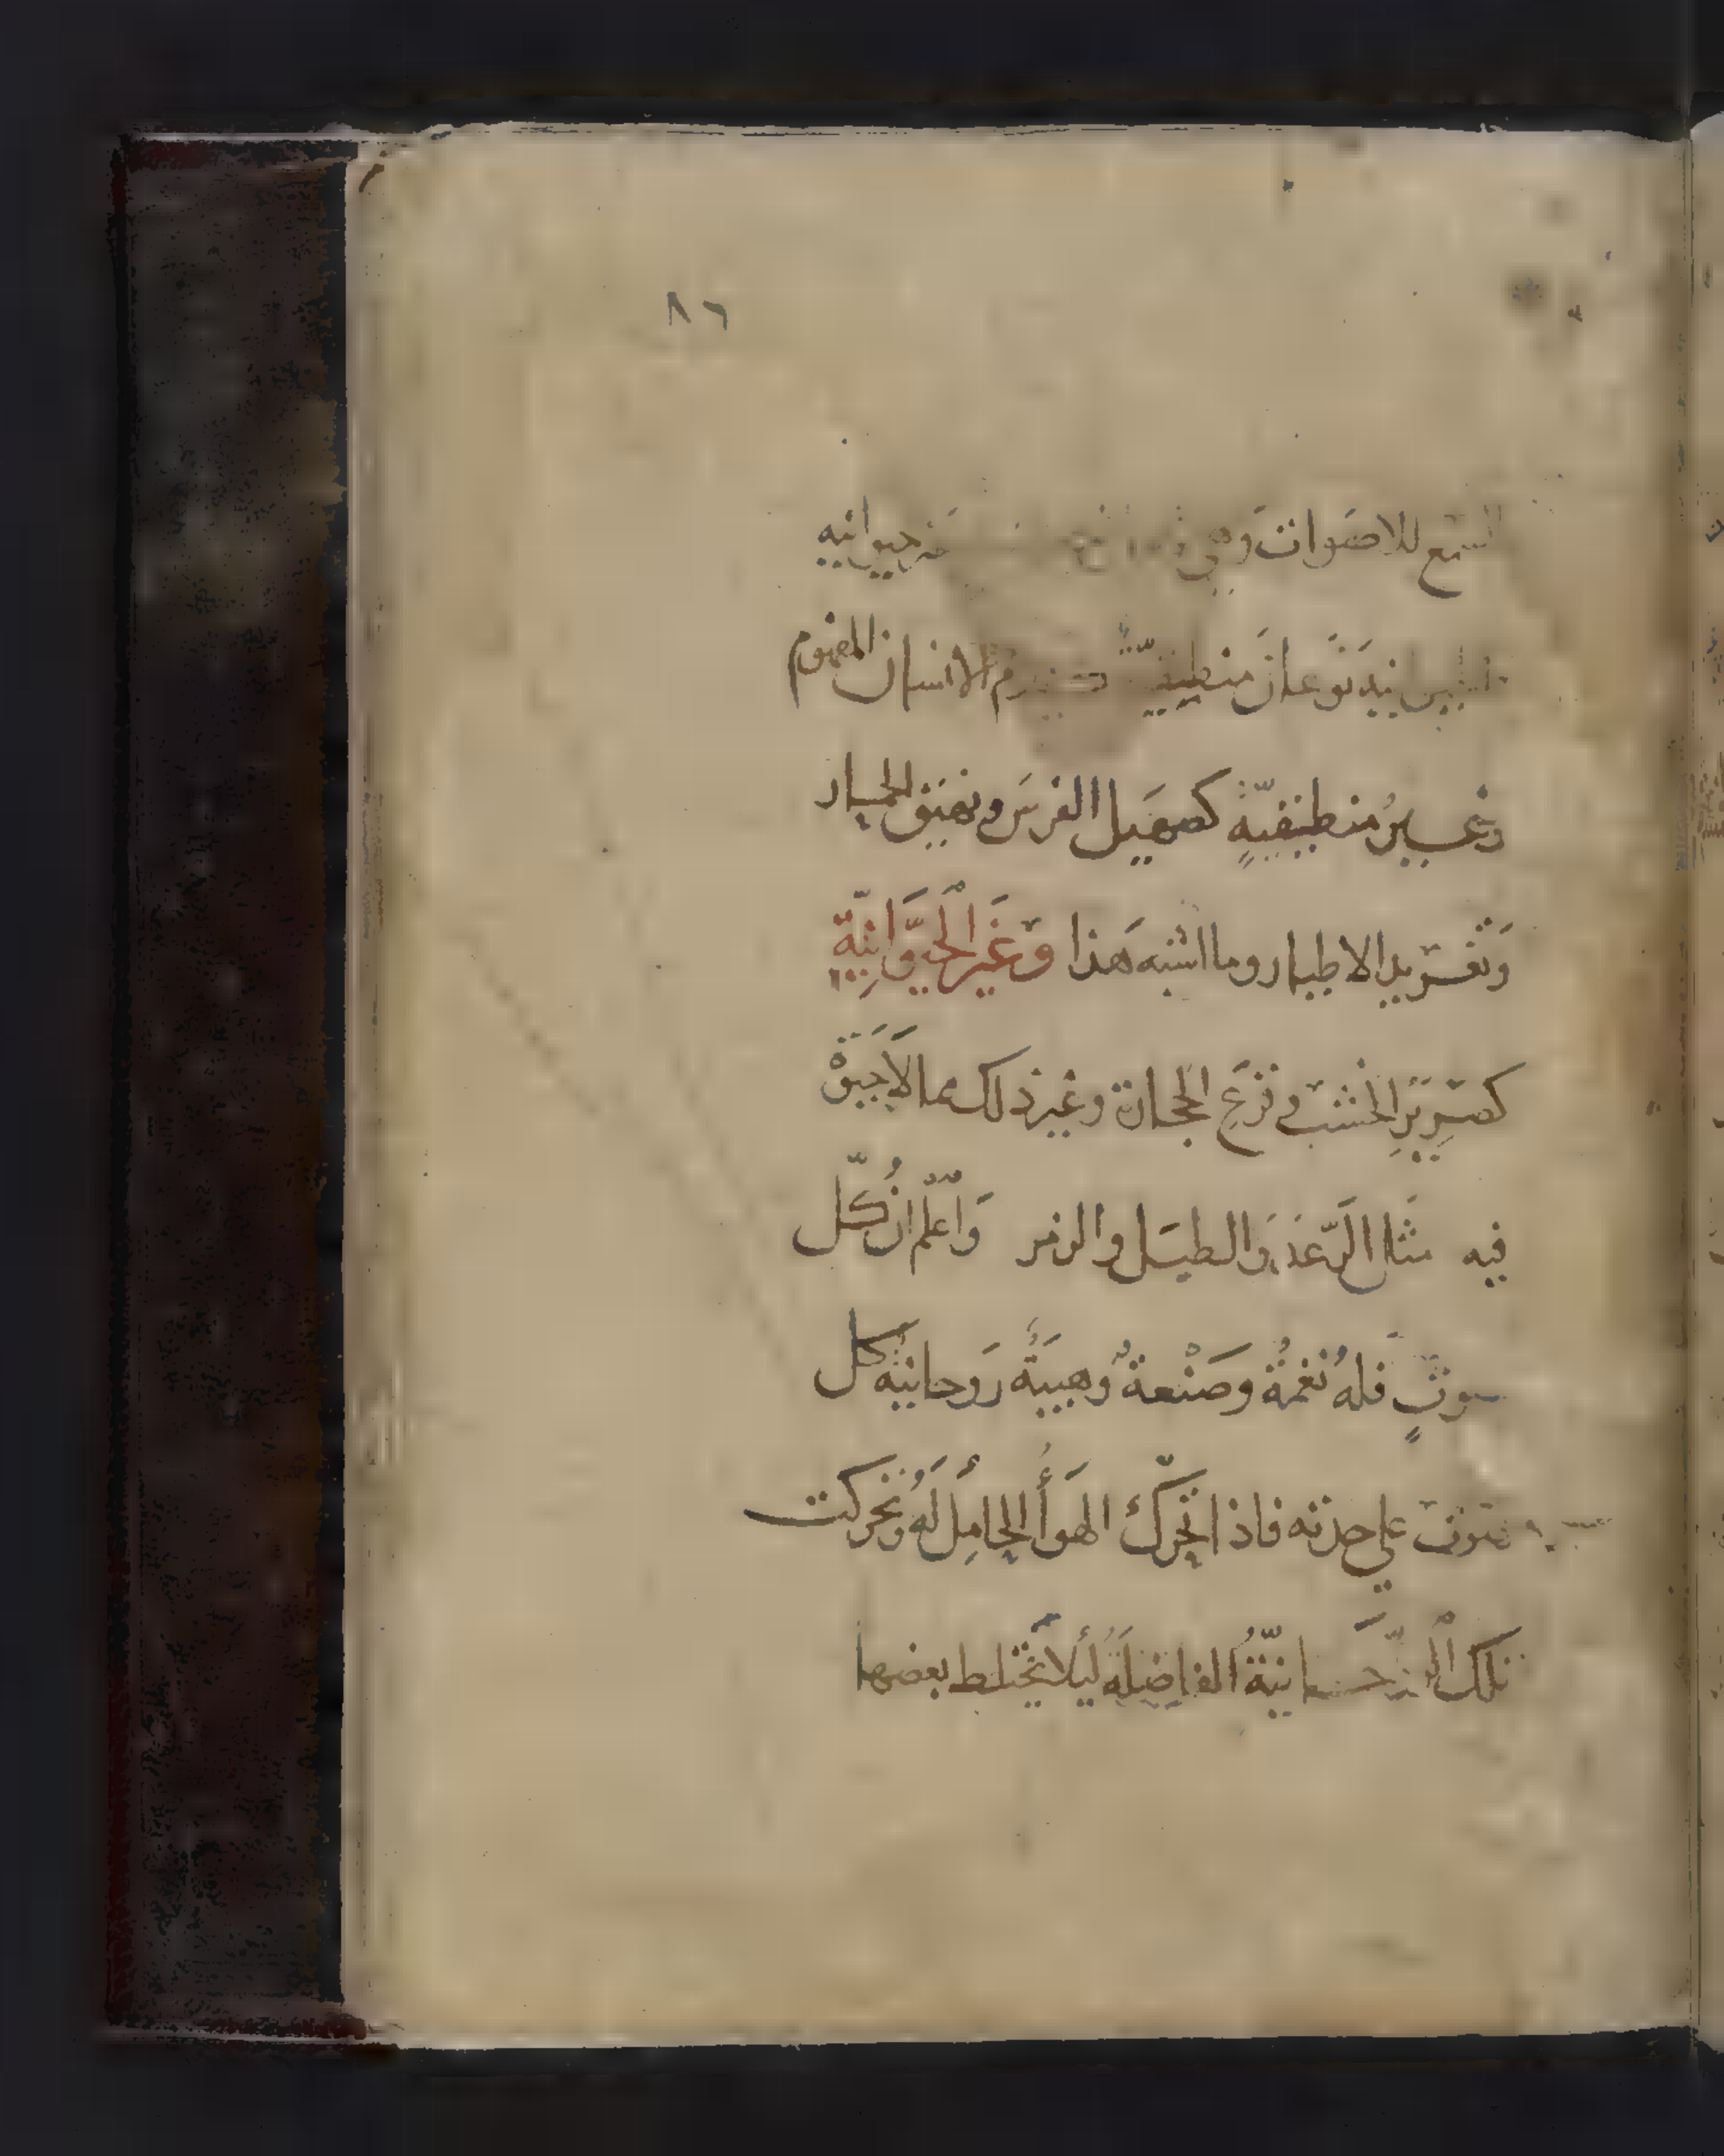 ٨٦
السمع للاصَوات وهي حيوانيه
نوعان منطيقيّة الانسان المفهوم
وغير منطيقيّةٍ كصهَيل الفرسَ ونهيَق الحمار
وَتغريد الاطيار وما اشبه هَذا وَغَيرُ الْحيوَّانِيّة
كصَرِيَرِ الخشبَ وقرعَ الحجارة وغير ذلك مما لاَحيَوة
فيه مثَال الرّعَدَ وَالطبَل والزمر وَاْعلم ان كُلّ
صوتٍ فله نُغمةُ وصَنْعة وهيبَةُ رَوحانيه كل
صوت على حدته فاذا تحَرّك الهَوأُ الحامِل لَهُ وتحركت
تلك الْرّوحَانيّةُ الفاضِلَةُ ليلاَ يختلط بعضها